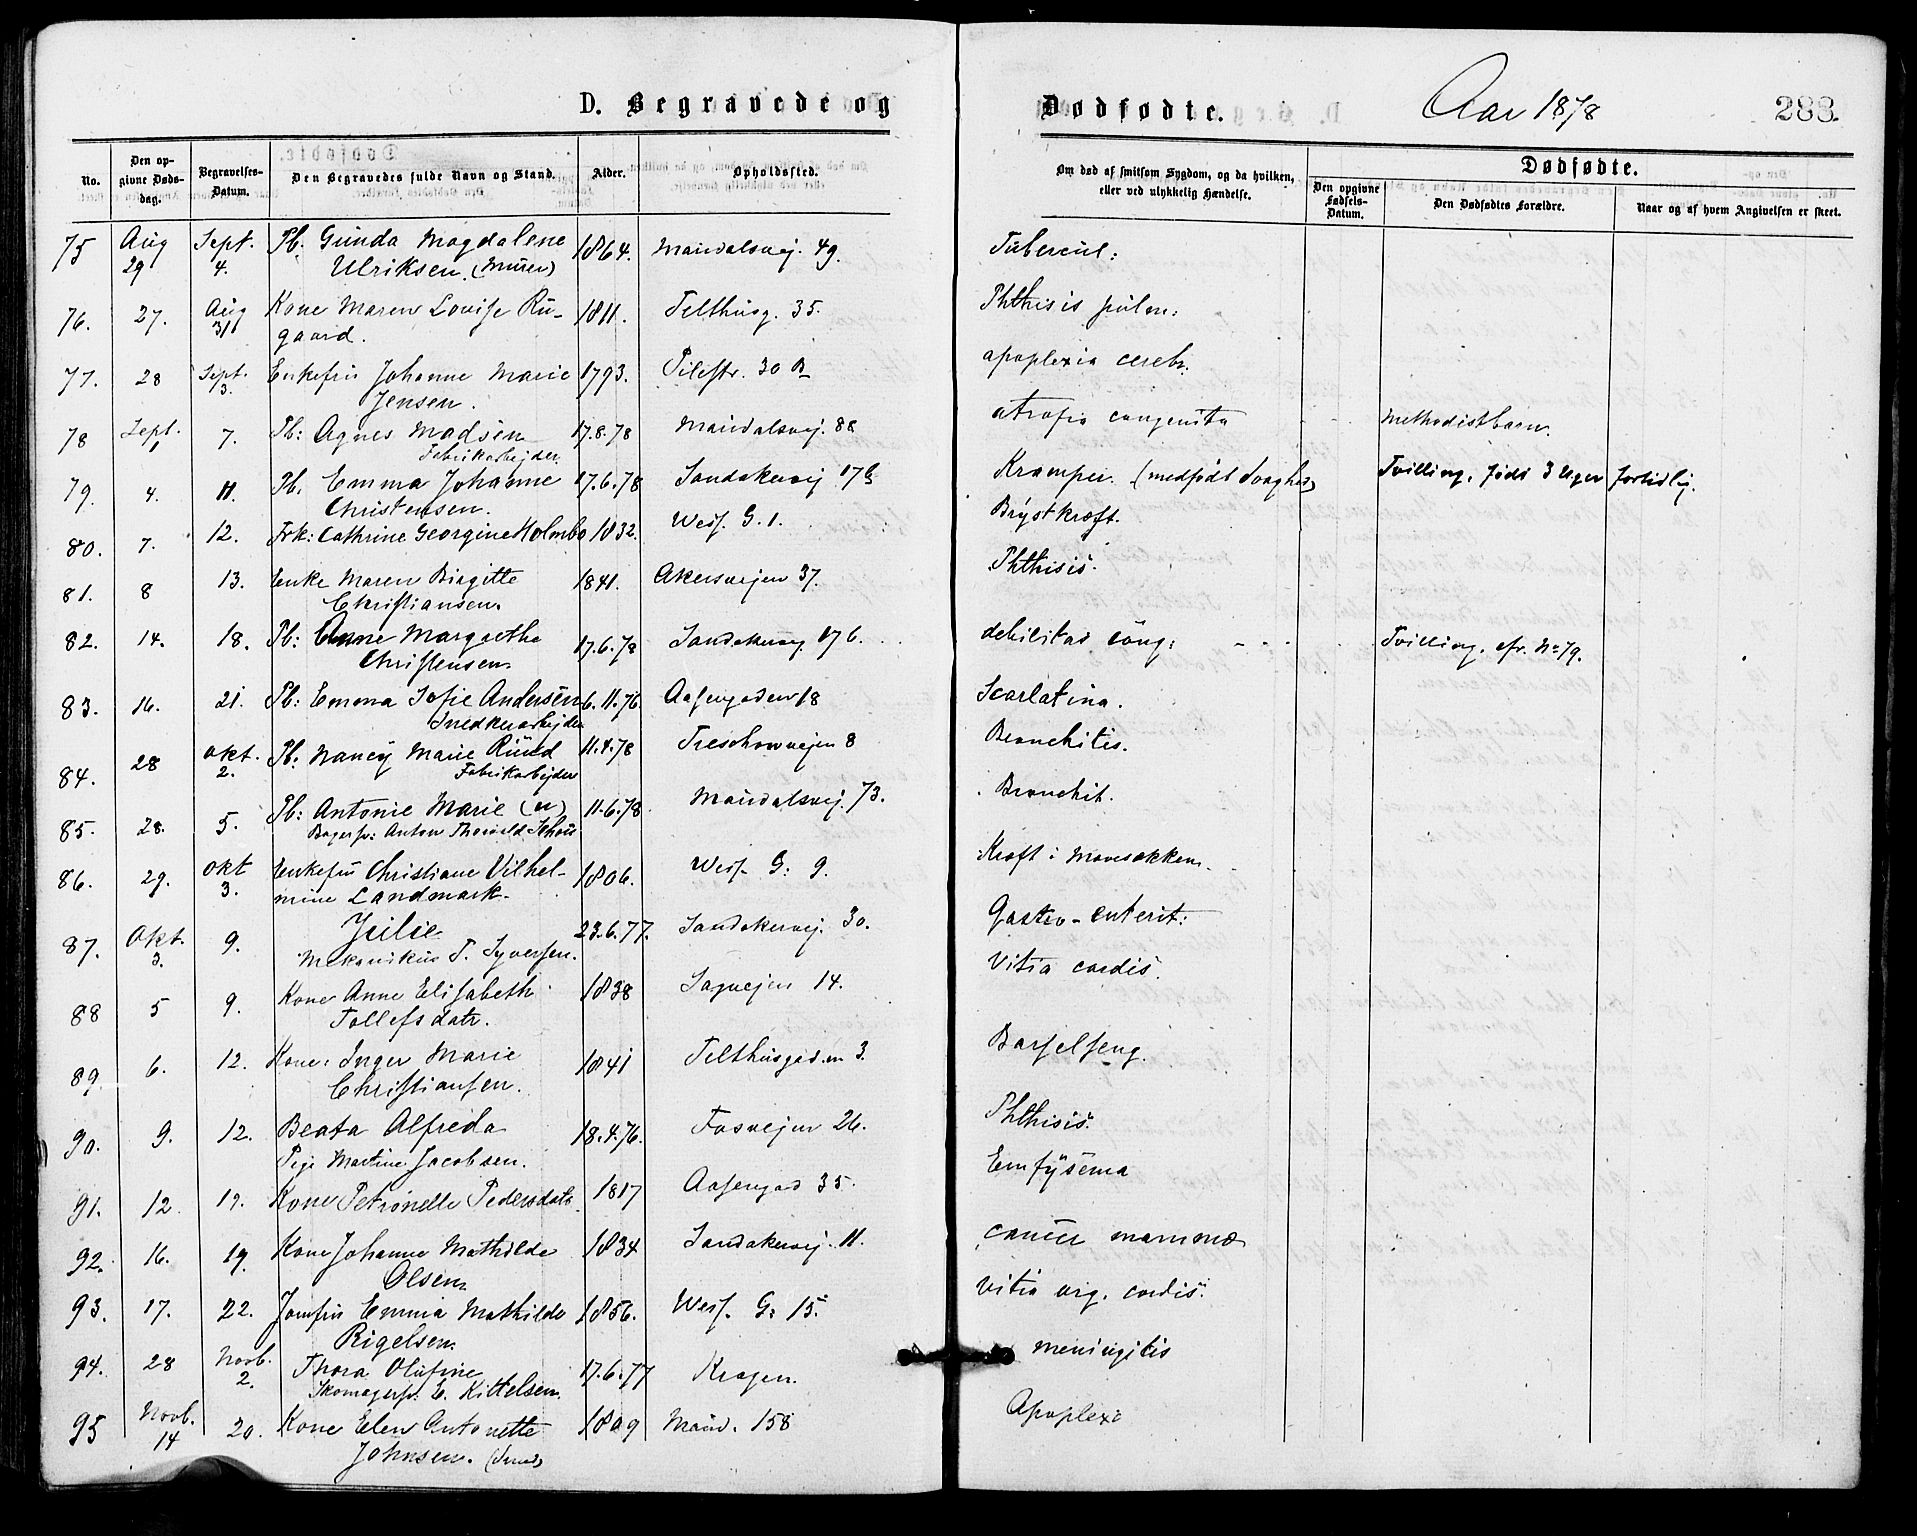 D. Begravede og
Dødfødte.
Aar 1878
283.
No.
Den opgivne Dødsdag.
Begravelses-Datum.
Den Begravedes fulde Navn og Stand.
Alder.
Opholdssted.
Om død af smitsom Sygdom, og da hvilken, eller ved ulykkelig Hændelse.
Dødfødte.
Den opgivne Fødsels-Datum.
Den Dødfødtes Forældre.
Naar og af hvem Angivelsen er skeet.
75 Aug 29 Sept. 4. Pb. Gunda Magdalene 1864. Maridalsvej. 49. Tubercul:
Ulriksen. (Murer)
76. 27. Aug 31 Kone Maren Lovise Ru- 1811. Telthusg. 35. Phthisis pulm:
gaard.
77. 28 Sept. 3. Enkefru Johanne Marie 1793. Pilestr. 30 B apoplexia cerebr.
Jensen.
78 Sept. 1 7. Pb: Agnes Madsen 17.8.78 Maridalsvej. 88 atrofia congenita Methodistbarn.
Fabrikarbejder.
79. 4. 11. Pb. Emma Johanne 17.6.78 Sandakervej 176 Kramper. (medfødt Svaghed) Tvilling, født 3 Uger fortidlig.
Christensen.
80. 7. 12. Frk: Cathrine Georgine Holmbo 1832. Wess. G. 1. Brystkræft.
81. 8 13. Enke Maren Birgitte 1841. Akersvejen 37. Phthisis.
Christiansen.
82. 14. 18. Pb: Anne Margrethe 17.6.78 Sandakervej 176. debilitas cong: Tvilling, cfr. No 79.
Christensen
83. 16. 21. Pb: Emma Sofie Andersen 6.11.76. Aasengaden 18 Scarlatina.
Snedkerarbejder
84. 28 Okt. 2. Pb. Nancy Marie Rund 11.4.78 Treschowvejen 8 Bronchitis.
Fabrikarbejder
85. 28. 5. Pb: Antonie Marie (u) 11.6.78 Maridalsvej. 73. Bronchit.
Bagersv: Anton Thorvald Schou
86. 29. Okt 3. Enkefru Christiane Vilhel- 1806. Wess. G: 9. Kræft i Mavesækken.
mine Landmark.
87. Okt. 3. 9. Julie 23.6.77. Sandakervej. 30. Gastro-enterit:
Mekanikus T. Syversen.
88 5 9. Kone Anne Elisabeth 1838 Sagvejen 14. Vitia cordis.
Tollefsdatr.
89. 6. 12. Kone: Inger Marie 1841 Telthusgaden 3. Barselseng.
Christiansen.
90. 9. 12. Beata Alfreda 18.4.76. Fosvejen 26. Phthisis.
Pige Martine Jacobsen.
91. 12 19. Kone Petronelle Pedersdatr. 1817 Aasengad 35. Emfysema
92. 16. 19. Kone Johanne Mathilde 1834 Sandakervej. 11. cancer mammæ
Olsen
93. 17. 22. Jomfru Emma Mathilde 1856. Wess. G: 15. Vitia org. cordis.
Rigelsen
94. 28 Novb. 2. Thora Olufine 17.6.77 Kragen. meningitis
Skomagersv: E. Kittelsen.
95 Novb. 14 20. Kone Elen Antonette 1809 Marid. 158 Apoplexi
Johnsen.